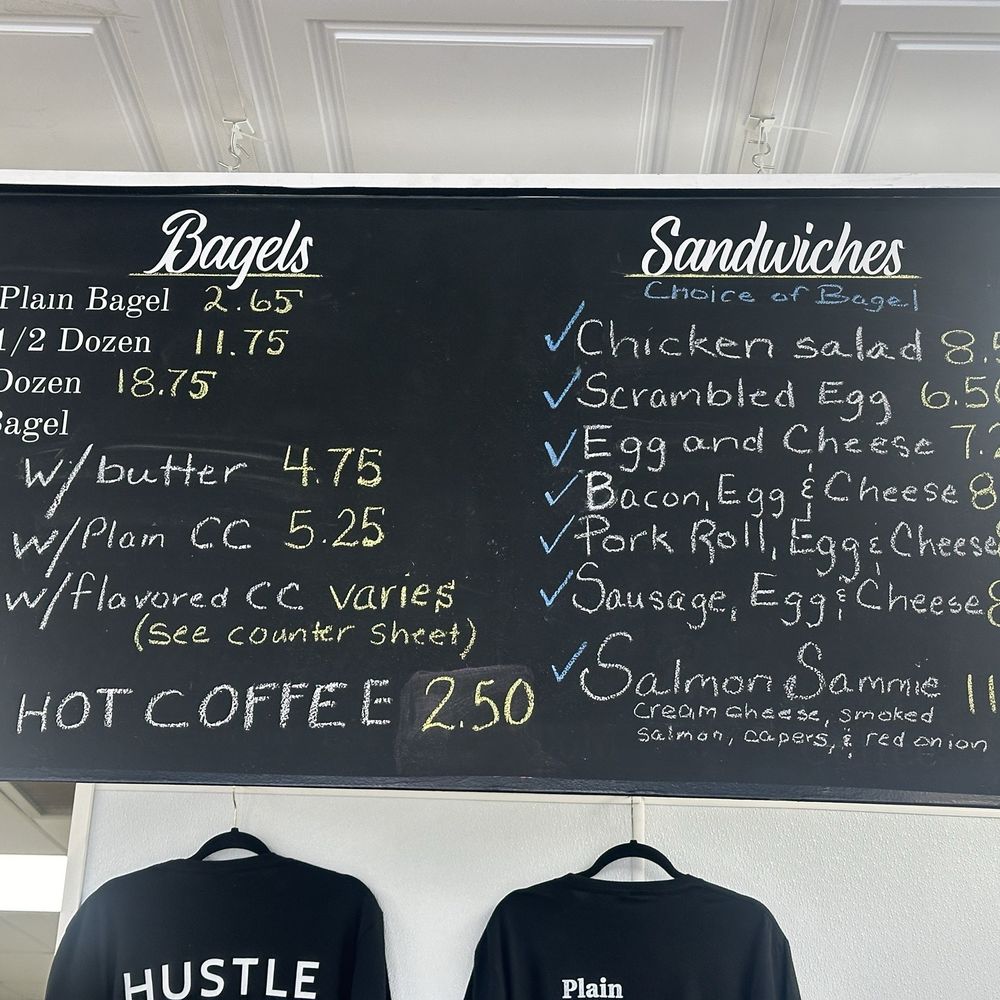 Bagels
Plain Bagel 2.65
1/2 Dozen 11.75
Dozen 18.75
Bagel
w/butter 4.75
w/Plain CC 5.25
w/flavored CC varies
(see counter sheet)
HOT COFFEE 2.50
Sandwiches
Choice of Bagel
Chicken salad 8.5
Scrambled Egg 6.50
Egg and Cheese 7.2
Bacon, Egg & Cheese 8
Pork Roll, Egg & Cheese
Sausage, Egg & Cheese 8
Salmon Sammie 11
cream cheese, smoked
salmon, capers, & red onion
HUSTLE
Plain